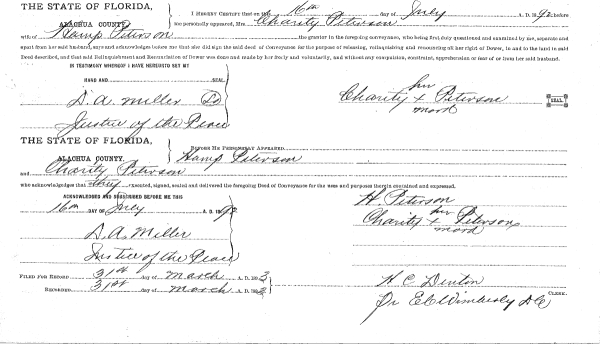 THE STATE OF FLORIDA,
ALACHUA COUNTY.
I HEREBY CERTIFY that on the 16th day of July A. D. 1892 before
me personally appeared, Mrs. Charity Peterson
wife of Hamp Peterson the grantor in the foregoing conveyance, who being first duly questioned and examined by me, separate and
apart from her said husband, says and acknowledges before me that she did sign the said deed of Conveyance for the purpose of releasing, relinquishing and renouncing all right of Dower, in and to the land in said
Deed described, and that said Relinquishment and Renunciation of Dower was done and made by her freely and voluntarily, and without any compulsion, constraint, apprehension or fear of or from her said husband.
IN TESTIMONY WHEREOF I HAVE HEREUNTO SET MY
HAND AND SEAL
D. A. Miller
Justice of the Peace
her
Charity + Peterson SEAL
mark
THE STATE OF FLORIDA,
ALACHUA COUNTY.
BEFORE ME PERSONALLY APPEARED Hamp Peterson
and Charity Peterson
who acknowledges that they executed, signed, sealed and delivered the foregoing Deed of Conveyance for the uses and purposes therein contained and expressed.
ACKNOWLEDGED AND SUBSCRIBED BEFORE ME THIS
16th DAY OF July A. D. 1892
D. A. Miller
Justice of the Peace
H. Peterson
her
Charity + Peterson
mark
FILED FOR RECORD 31st day of March A. D. 1893
RECORDED 31st day of March A. D. 1893
H. C. Denton
CLERK.
Pr E C Wimberly D C